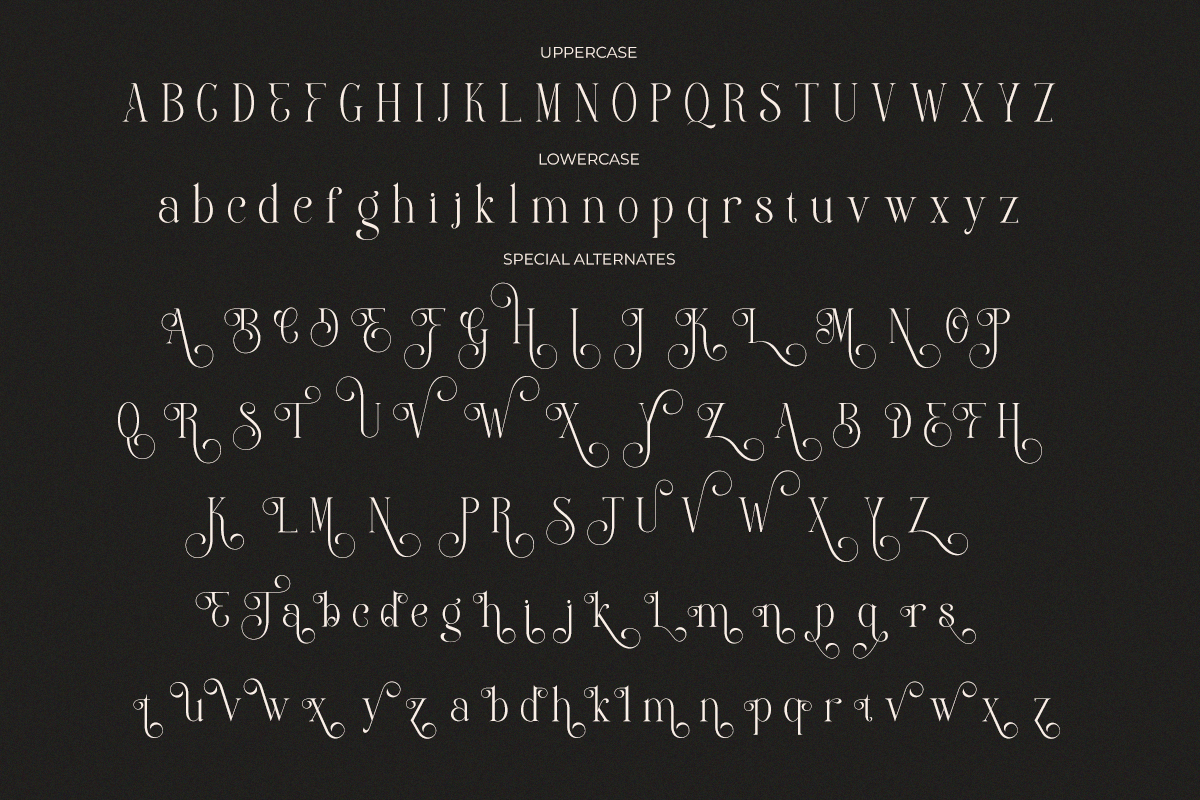 UPPERCASE
A B C D E F G H I J K L M N O P Q R S T U V W X Y Z
LOWERCASE
a b c d e f g h i j k l m n o p q r s t u v w x y z
SPECIAL ALTERNATES
A B C D E F G H I J K L M N O P
Q R S T U V W X Y Z A B D E F H
K L M N P R S T U V W X Y Z
E T a b c d e g h i j k l m n p q r s
t u v w x y z a b d h k l m n p q r t v w x z